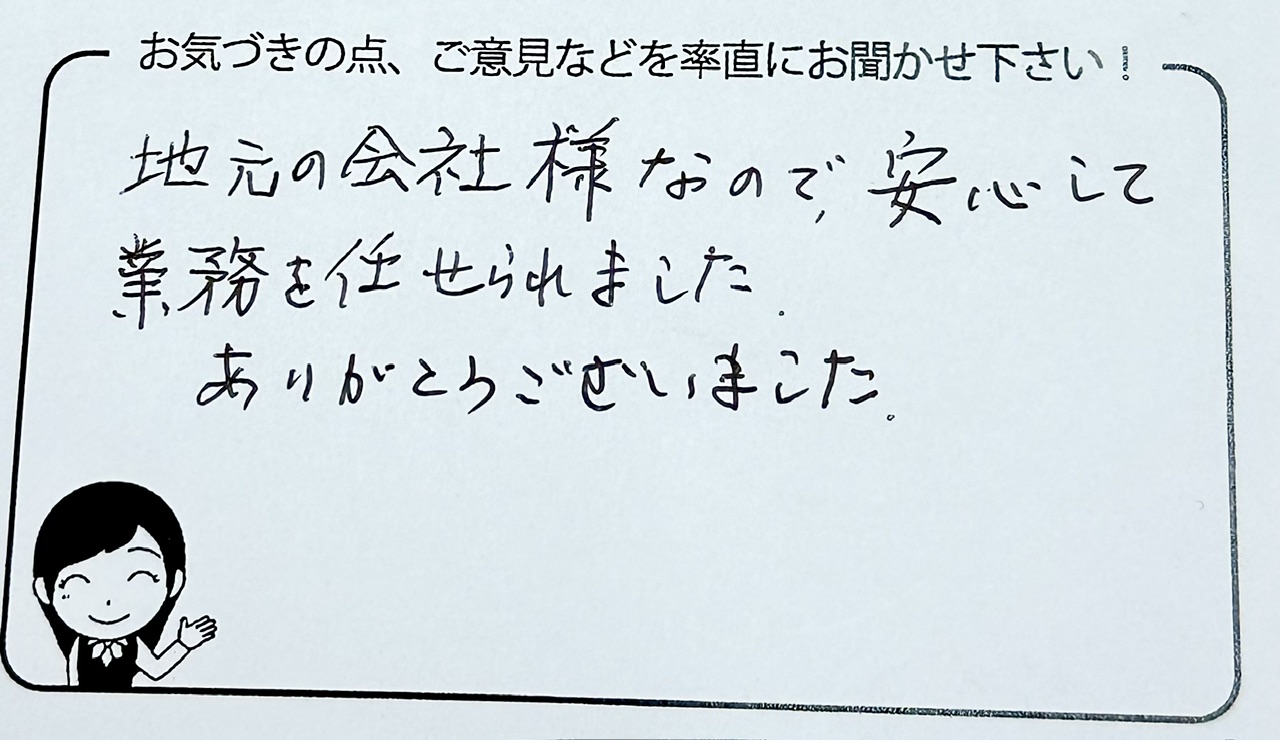 お気づきの点、ご意見などを率直にお聞かせ下さい!
地元の会社様なので、安心して
業務を任せられました.
ありがとうございました.